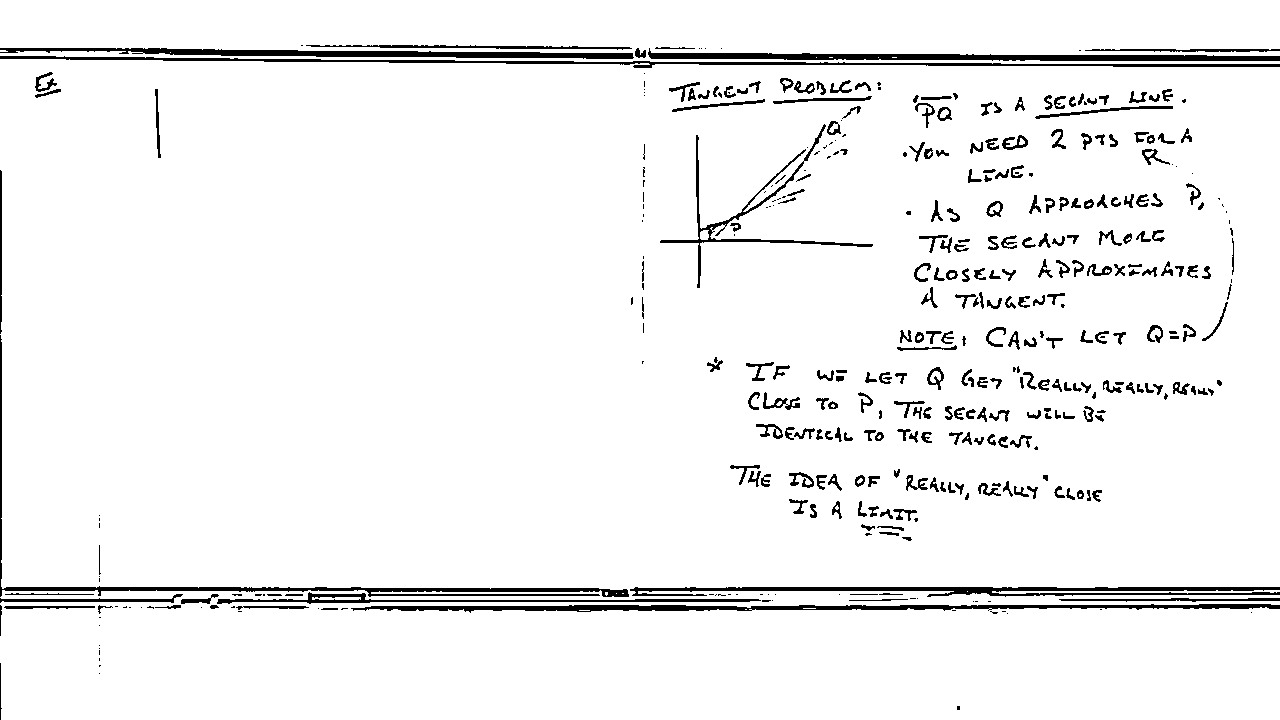 Ex
TANGENT PROBLEM:
Q
P
"PQ" IS A SECANT LINE.
• YOU NEED 2 PTS FOR A
LINE.
• AS Q APPROACHES P,
THE SECANT MORE
CLOSELY APPROXIMATES
A TANGENT.
NOTE: CAN'T LET Q=P
* IF WE LET Q GET "REALLY, REALLY, REALLY"
CLOSE TO P, THE SECANT WILL BE
IDENTICAL TO THE TANGENT.
THE IDEA OF "REALLY, REALLY" CLOSE
IS A LIMIT.